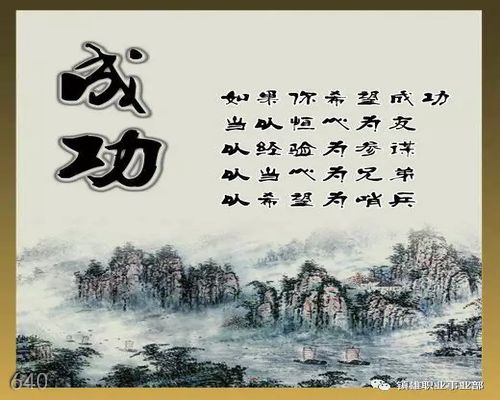 成功
如果你希望成功
当以恒心为友
以经验为参谋
以当心为兄弟
以希望为哨兵
640
镇雄职业事业部